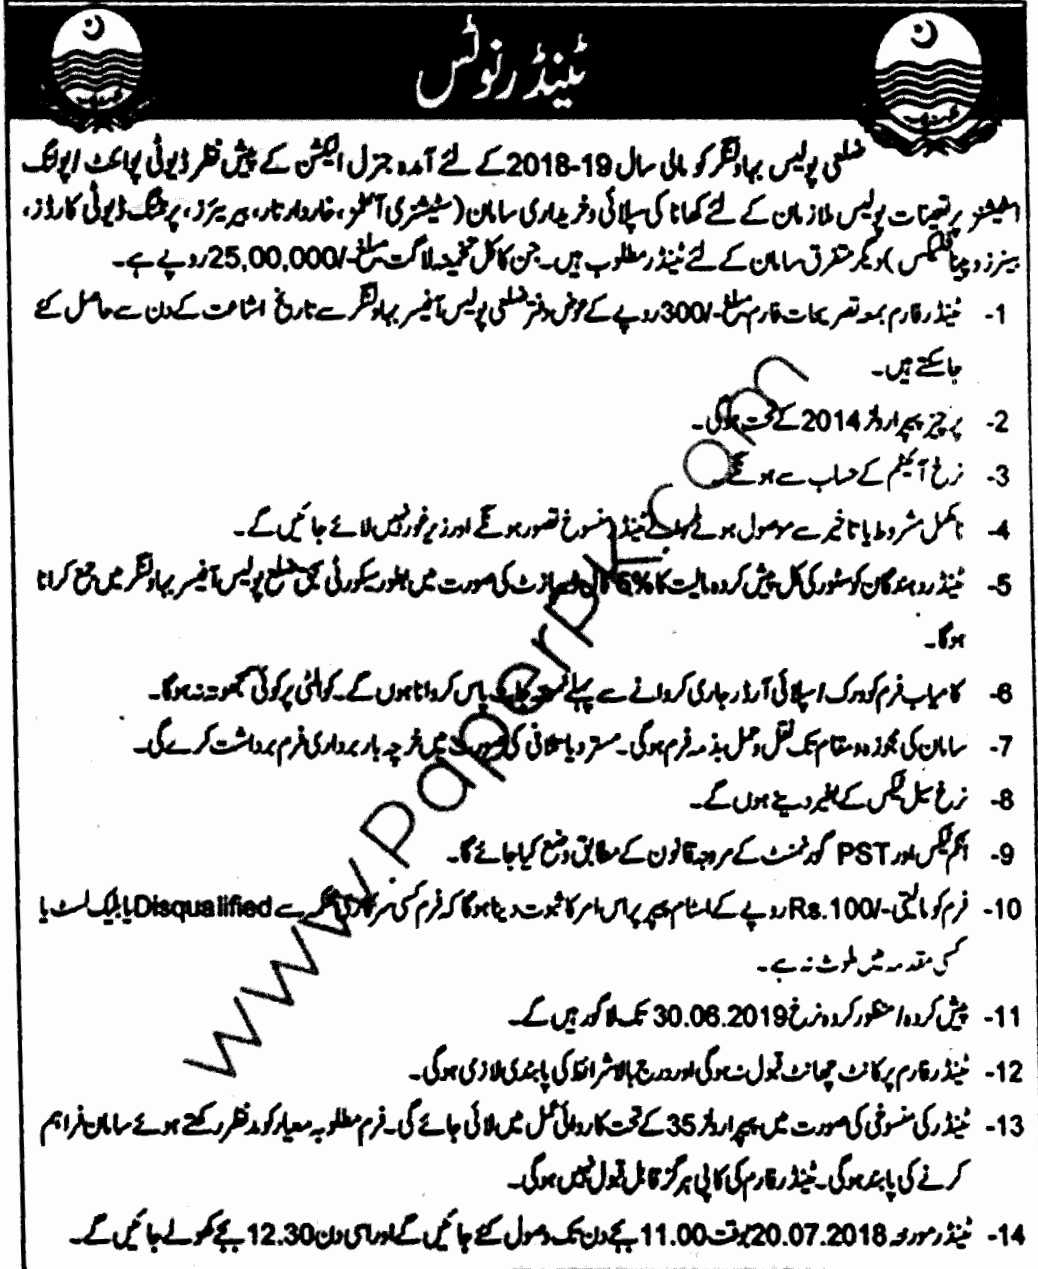 ٹینڈر نوٹس
ضلعی پولیس بہاولنگر کو مالی سال 19-2018 کے لئے آمدہ جنرل الیکشن کے پیش نظر ڈیوٹی پوائنٹ / پولنگ
اسٹیشنز پر تعینات پولیس ملازمان کے لئے کھانا کی سپلائی و خریداری سامان (سٹیشنری آئٹمز، خاردار تار، بیریئرز، پرنٹنگ ڈیوٹی کارڈز،
بینرز و پینا فلیکس) دیگر متفرق سامان کے لئے ٹینڈر مطلوب ہیں۔ جن کا کل تخمینہ لاگت مبلغ -/25,00,000 روپے ہے۔
1- ٹینڈر فارم بمعہ تصریحات فارم مبلغ -/300 روپے کے عوض دفتر ضلعی پولیس آفیسر بہاولنگر سے تاریخ اشاعت کے دن سے حاصل کئے
جا سکتے ہیں۔
2- پرچیز پیپرا رولز 2014 کے تحت ہوگی۔
3- نرخ آئیٹم کے حساب سے ہونگے۔
4- نامکمل مشروط یا تاخیر سے موصول ہونے والے ٹینڈر منسوخ تصور ہونگے اور زیر غور نہیں لائے جائیں گے۔
5- ٹینڈر دہندگان کو سٹور کی کل پیش کردہ مالیت کا 5% کال ڈیپازٹ کی صورت میں بطور سیکورٹی بحق ضلع پولیس آفیسر بہاولنگر میں جمع کرانا
ہوگا۔
6- کامیاب فرم کو ورک / سپلائی آرڈر جاری کروانے سے پہلے نمونہ جات پاس کروانا ہوں گے۔ کوالٹی پر کوئی سمجھوتہ نہ ہوگا۔
7- سامان کی مجوزہ مقام تک نقل و حمل بذمہ فرم ہوگی۔ مسترد یا متلافی کی صورت میں خرچہ باربرداری فرم برداشت کرے گی۔
8- نرخ سیل ٹیکس کے بغیر دینے ہوں گے۔
9- انکم ٹیکس اور PST گورنمنٹ کے مروجہ قانون کے مطابق وضع کیا جائے گا۔
10- فرم کو مالیتی -/Rs.100 روپے کے اسٹام پیپر پر اس امر کا ثبوت دینا ہوگا کہ فرم کسی سرکاری محکمے سے Disqualified یا بلیک لسٹ یا
کسی مقدمہ میں ملوث نہ ہے۔
11- پیش کردہ / منظور کردہ نرخ 30.06.2019 تک لاگو رہیں گے۔
12- ٹینڈر فارم پر کانٹ چھانٹ قبول نہ ہوگی اور درج بالا شرائط کی پابندی لازمی ہوگی۔
13- ٹینڈر کی منسوخی کی صورت میں پیپرا رولز 35 کے تحت کاروائی عمل میں لائی جائے گی۔ فرم مطلوبہ معیار کو مدنظر رکھتے ہوئے سامان فراہم
کرنے کی پابند ہوگی۔ ٹینڈر فارم کی کاپی ہرگز قابل قبول نہیں ہوگی۔
14- ٹینڈر مورخہ 20.07.2018 بوقت 11.00 بجے دن تک وصول کئے جائیں گے اور اسی دن 12.30 بجے کھولے جائیں گے۔
www.PaperPK.com